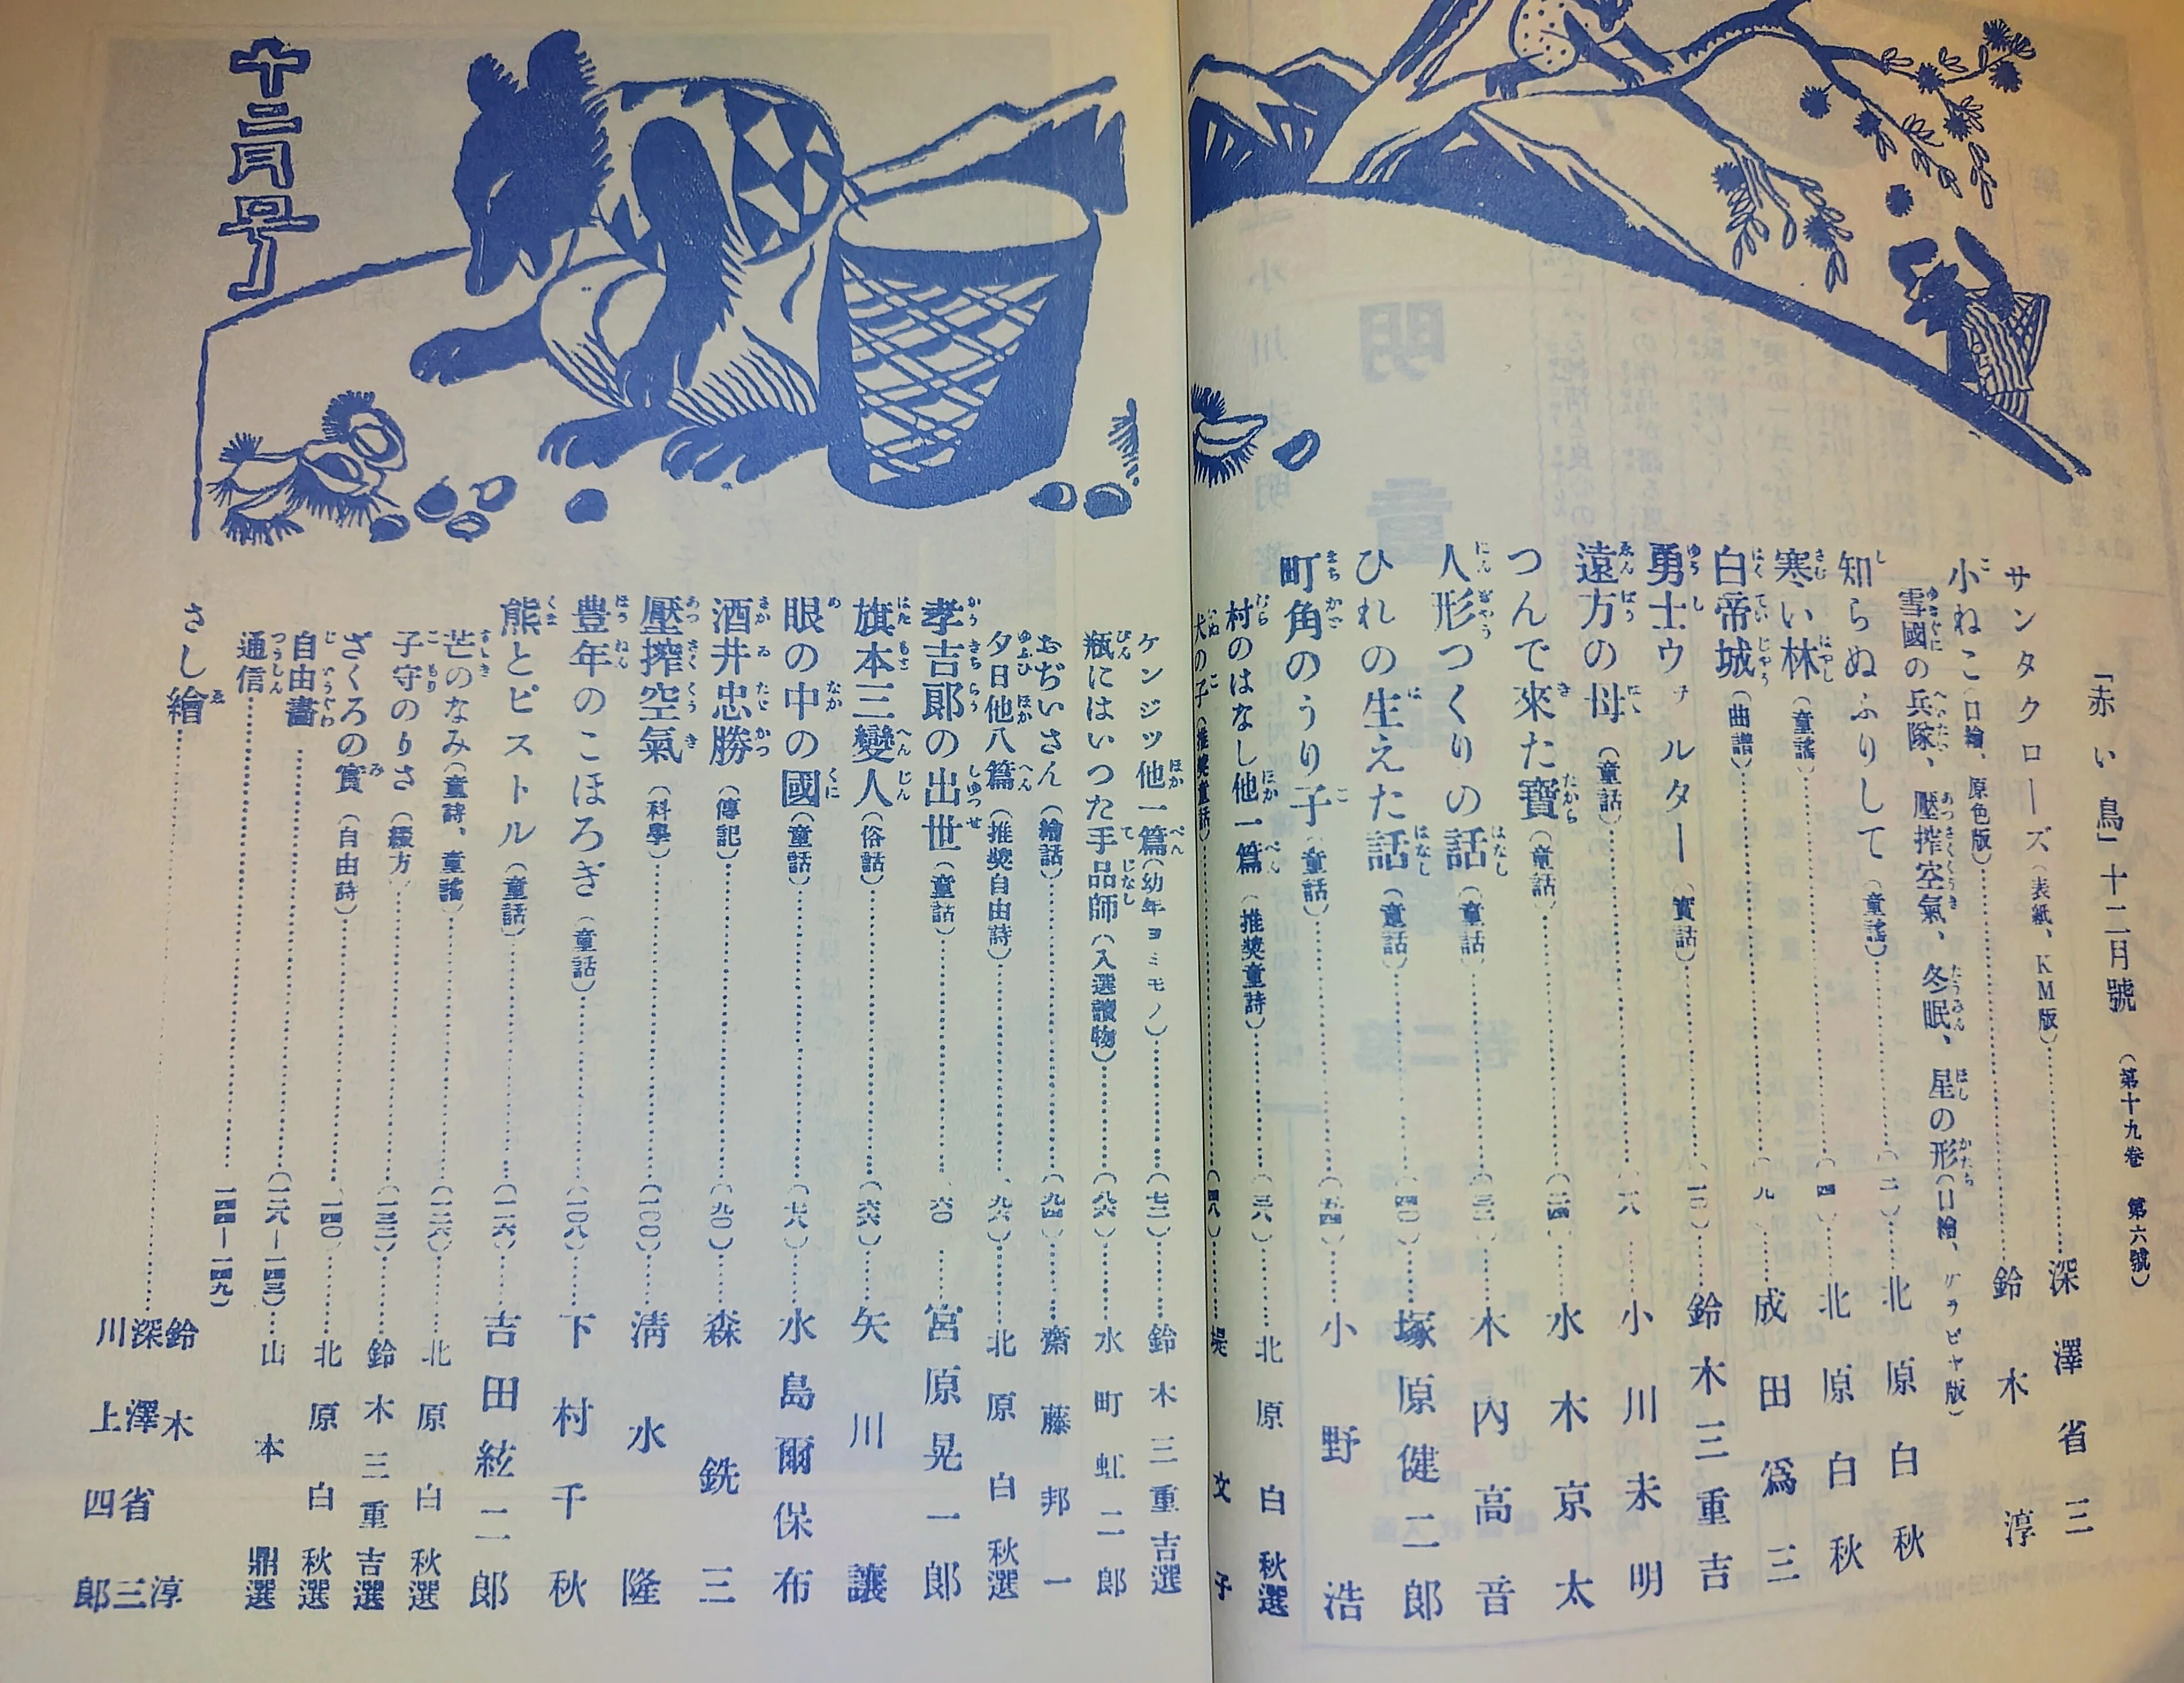 「赤い鳥」十二月號（第十九卷 第六號）
サンタクローズ（表紙、KM版）深澤省三
小ねこ（口繪、原色版）鈴木淳
雪國の兵隊、壓搾空氣、冬眠、星の形（口繪、グラビヤ版）
知らぬふりして（童謠）（二）北原白秋
寒い林（童謠）（四）北原白秋
白帝城（曲譜）成田爲三
勇士ウァルター（實話）鈴木三重吉
遠方の母（童話）（一八）小川未明
つんで來た寶（童話）（二四）水木京太
人形つくりの話（童話）木內高音
ひれの生えた話（童話）（四〇）塚原健二郎
町角のうり子（童話）（五四）小野浩
村のはなし他一篇（推奬童詩）（三八）北原白秋選
犬の子（推奬童話）（四八）堤文子
ケンジツ他一篇（幼年ヨミモノ）（七二）鈴木三重吉選
瓶にはいつた手品師（入選讀物）（八六）水町虹二郎
おぢいさん（繪話）（九四）齋藤邦一
夕日他八篇（推奬自由詩）（九六）北原白秋選
孝吉郞の出世（童話）（六〇）宮原晃一郞
旗本三變人（俗話）（六六）矢川讓
眼の中の國（童話）（七八）水島爾保布
酒井忠勝（傳記）（九〇）森銑三
壓搾空氣（科學）（一〇〇）淸水隆
豊年のこほろぎ（童話）（一〇八）下村千秋
熊とピストル（童話）（一一六）吉田絃二郎
芒のなみ（童詩、童謠）（一二六）北原白秋選
子守のりさ（綴方）（一三二）鈴木三重吉選
ざくろの實（自由詩）（一四〇）北原白秋選
自由畫（一三八―一四三）山本鼎選
通信（一四四―一四九）
さし繪 鈴木淳 深澤省三 川上四郞
十二月号